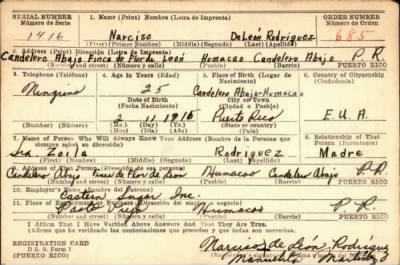 SERIAL NUMBER
Número de Serie
1416
1. Name (Print) (Letra de Imprenta)
Narciso DeLeón Rodriguez
(First)(Primer Nombre) (Middle)(Segundo) (Last)(Apellido)
ORDER NUMBER
Número de Orden
685
2. Address (Print) (Dirección) (Letra de Imprenta)
Candelero Abajo Finca de Flor de León Humacao Candelero Abajo P.R.
(Number and street) (Número y calle) (Town) (Pueblo) (Barrio) PUERTO RICO
3. Telephone (Teléfono)
Ninguno
(Number) (Número)
4. Age in Years (Edad)
25
Date of Birth
(Fecha Nacimiento)
2 11 1916
5. Place of Birth (Lugar de Nacimiento)
Candelero Abajo-Humacao
City or Town
(Ciudad o Pueblo)
Puerto Rico
6. Country of Citizenship
(Ciudadanía)
E.U.A.
7. Name of Person Who Will Always Know Your Address (Nombre de la Persona que siempre sabrá su dirección)
Sra. Rodriguez
8. Relationship of That Person (Parentesco)
Madre
9. Address of That Person (Dirección de esa persona)
Candelero Abajo Finca de Flor de León Humacao Candelero Abajo P.R.
PUERTO RICO
10. Employer's Name (Nombre del Patrono)
Eastern Sugar Inc.
11. Place of Employment
Pasto Viejo Humacao P.R.
(Number and street) (Número y calle) (Town) (Pueblo) PUERTO RICO
I Affirm That I Have Verified Above Answers And That They Are True.
(Afirmo que he verificado las contestaciones que preceden y que todas son correctas.)
REGISTRATION CARD
D. S. S. Form 1
PUERTO RICO
Narciso de León Rodríguez